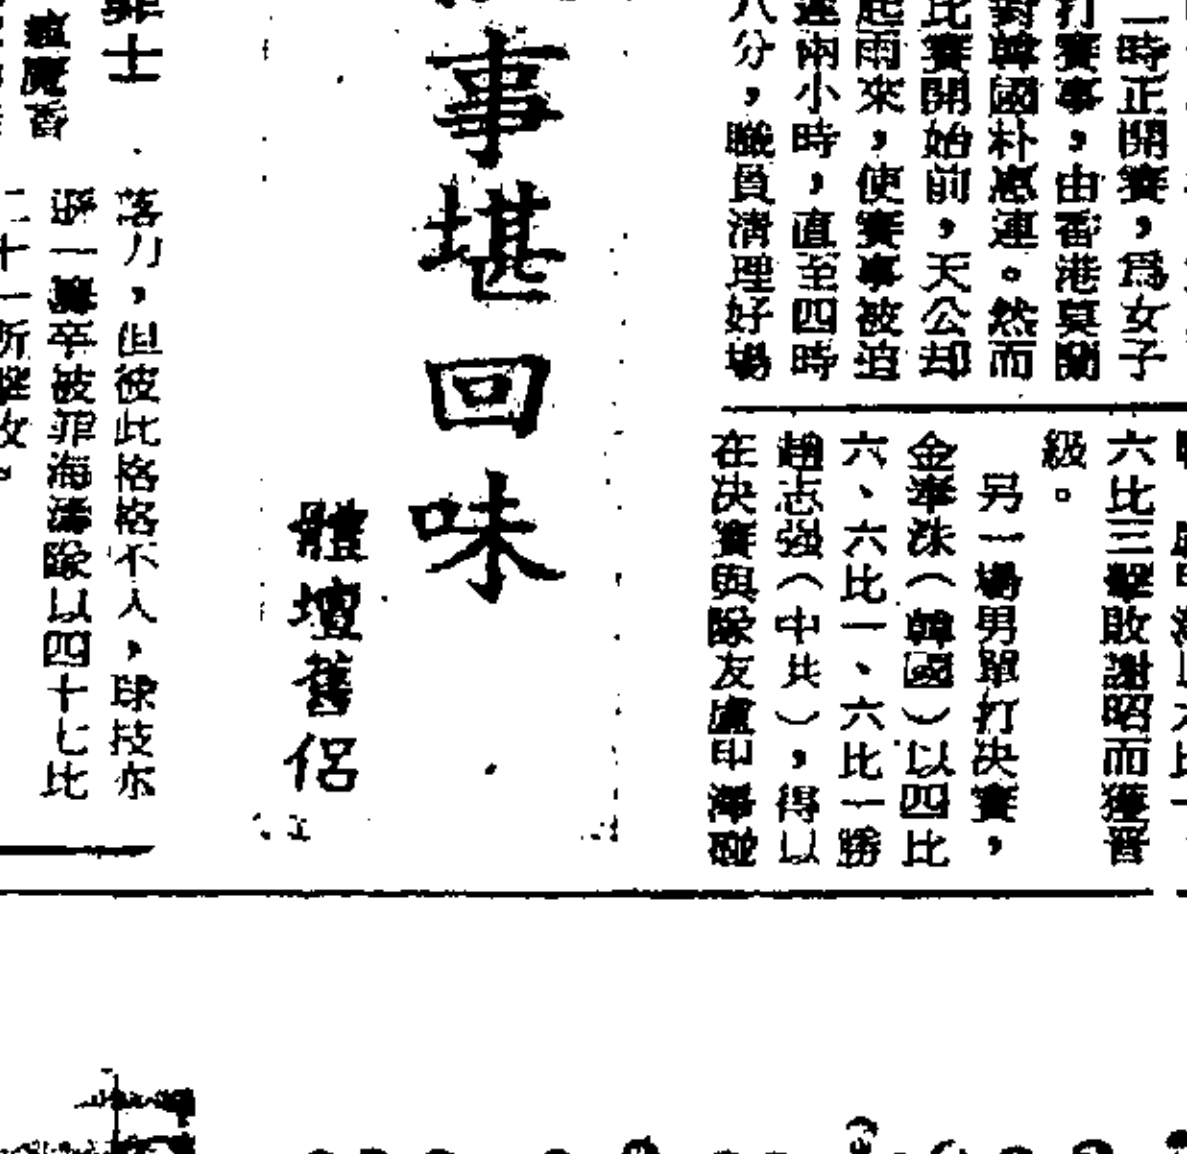 二時正開賽，爲女子
打賽事，由香港莫蘭
對韓國朴惠連。然而
比賽開始前，天公却
起雨來，使賽事被迫
遲兩小時，直至四時
八分，職員清理好場
六比三擊敗謝昭而獲晋
級。
另一場男單打決賽，
金奉洙（韓國）以四比
六、六比一、六比一勝
趙志强（中共），得以
在決賽與隊友盧甲澤碰
事堪回味
體壇舊侶
士
落力，但彼此格格不入，球技亦
遜一籌卒被菲海濤隊以四十七比
二十一所擊敗。